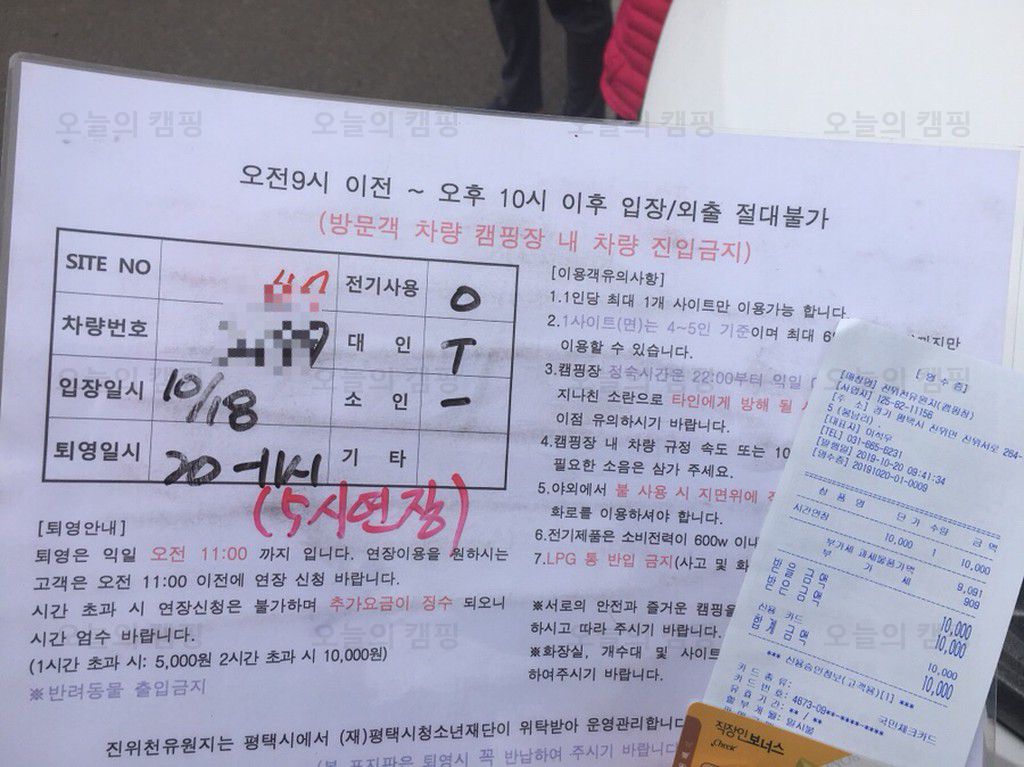 오늘의 캠핑 오늘의 캠핑 오늘의 캠핑 오늘의 캠핑
오전9시 이전 ~ 오후 10시 이후 입장/외출 절대불가
(방문객 차량 캠핑장 내 차량 진입금지)
SITE NO
전기사용 O
차량번호
대 인 T
입장일시 10/18
소 인 -
퇴영일시 20 -11시
기 타
(5시연장)
[퇴영안내]
퇴영은 익일 오전 11:00 까지 입니다. 연장이용을 원하시는
고객은 오전 11:00 이전에 연장 신청 바랍니다.
시간 초과 시 연장신청은 불가하며 추가요금이 징수 되오니
시간 엄수 바랍니다.
(1시간 초과 시: 5,000원 2시간 초과 시 10,000원)
※반려동물 출입금지
[이용객유의사항]
1.1인당 최대 1개 사이트만 이용가능 합니다.
2.1사이트(면)는 4~5인 기준이며 최대 6 까지만
이용할 수 있습니다.
3.캠핑장 정숙시간은 22:00부터 익일
지나친 소란으로 타인에게 방해 될
이점 유의하시기 바랍니다.
4.캠핑장 내 차량 규정 속도 또는 10
필요한 소음은 삼가 주세요.
5.야외에서 불 사용 시 지면위에
화로를 이용하셔야 합니다.
6.전기제품은 소비전력이 600w
7.LPG 통 반입 금지(사고 및
※서로의 안전과 즐거운 캠핑을
하시고 따라 주시기 바랍니다.
※화장실, 개수대 및 사이트
하여주시기 바랍니다.
진위천유원지는 평택시에서 (재)평택시청소년재단이 위탁받아 운영관리합니다
(본 표지판은 퇴영시 꼭 반납하여 주시기 바랍니다
[영수증]
[매장명] 진위천유원지(캠핑장)
[사업자] 125-82-11156
[주 소] 경기 평택시 진위면 진위서로 264-
5 (봉남리)
[대표자] 이석우
[TEL] 031-665-6231
[발행일] 2019-10-20 09:41:34
[영수증] 20191020-01-0009
상 품 명 단 가 수량 금 액
시간연장
10,000 1 10,000
부가세 과세물품가액 9,091
부 가 세 909
받을 금액 10,000
받은 금액 10,000
신용 카드 10,000
합계 금액 10,000
*** 신용승인정보(고객용)[1] ***
카드 종류: 국민체크카드
카드 번호: 4673-09**-****-****
유효 기간: ** / **
할부개월: 일시불
직장인보너스
Check